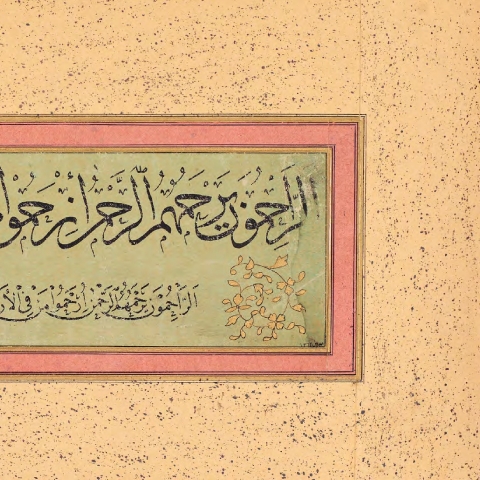 الرَّاحِمُونَ يَرْحَمُهُمُ الرَّحْمٰنُ اِرْحَمُوا
الرَّاحِمُونَ يَرْحَمُهُمُ الرَّحْمٰنُ اِرْحَمُوا مَنْ فِي الْأَر